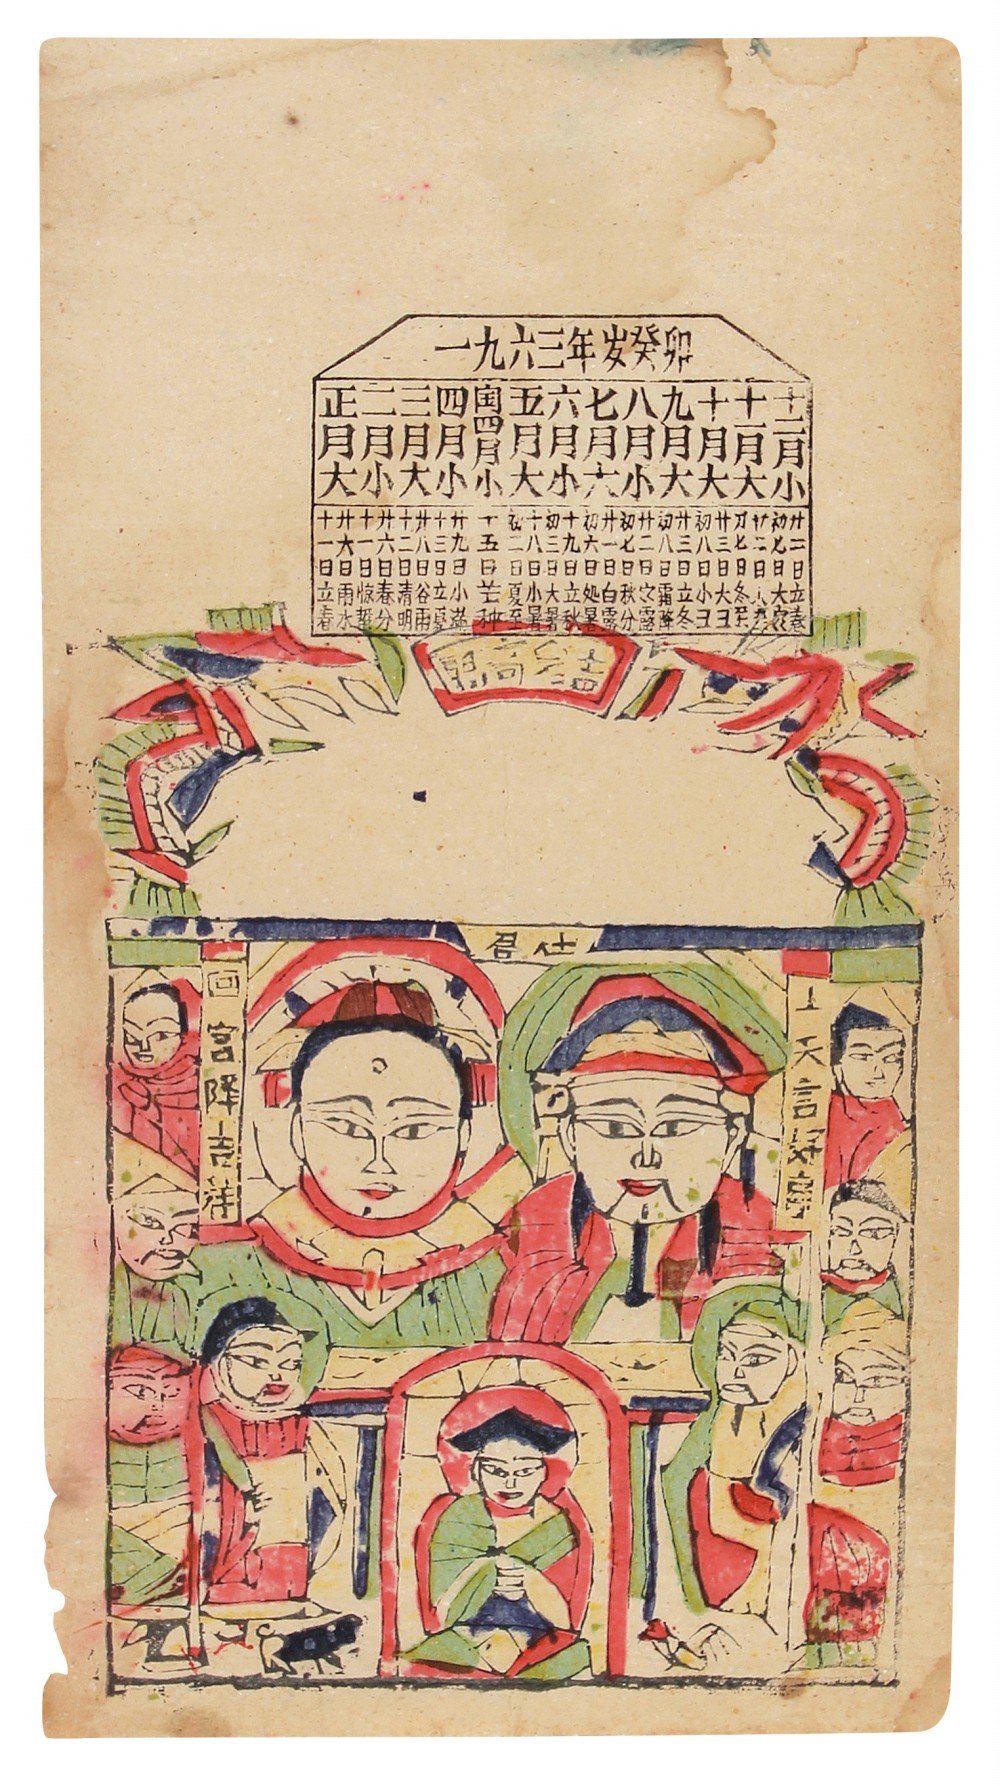 一九六三年岁癸卯
正月大
二月小
三月大
四月小
闰四月小
五月大
六月小
七月大
八月小
九月大
十月大
十一月大
十二月小
十一日立春
廿六日雨水
十一日惊蛰
廿六日春分
十二日清明
廿八日谷雨
十三日立夏
廿九日小满
十五日芒种
初二日夏至
十八日小暑
初三日大暑
十九日立秋
初六日处暑
廿一日白露
初七日秋分
廿二日露
初八日霜降
廿三日立冬
初八日小丑
廿三日大丑
七日冬至
廿二日
初七日大
廿二日立春
仕君
上天言好事
回宮降吉祥